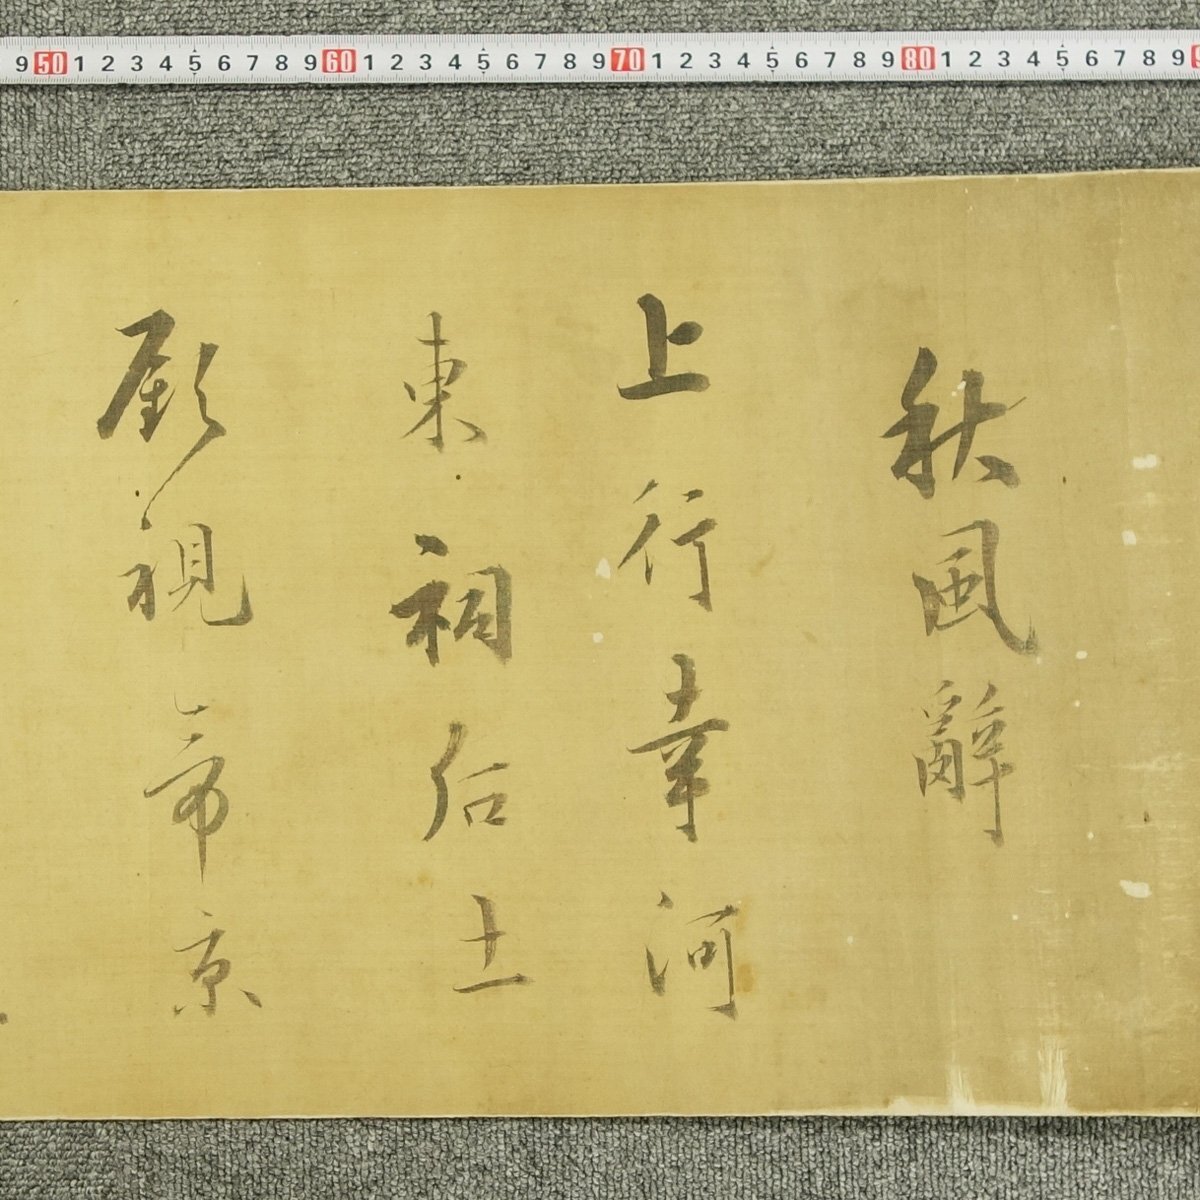 9 50 1 2 3 4 5 6 7 8 9 60 1 2 3 4 5 6 7 8 9 70 1 2 3 4 5 6 7 8 9 80 1 2 3 4 5 6 7 8 9
秋風辭
上行幸河
東祠后土
顧視帝京